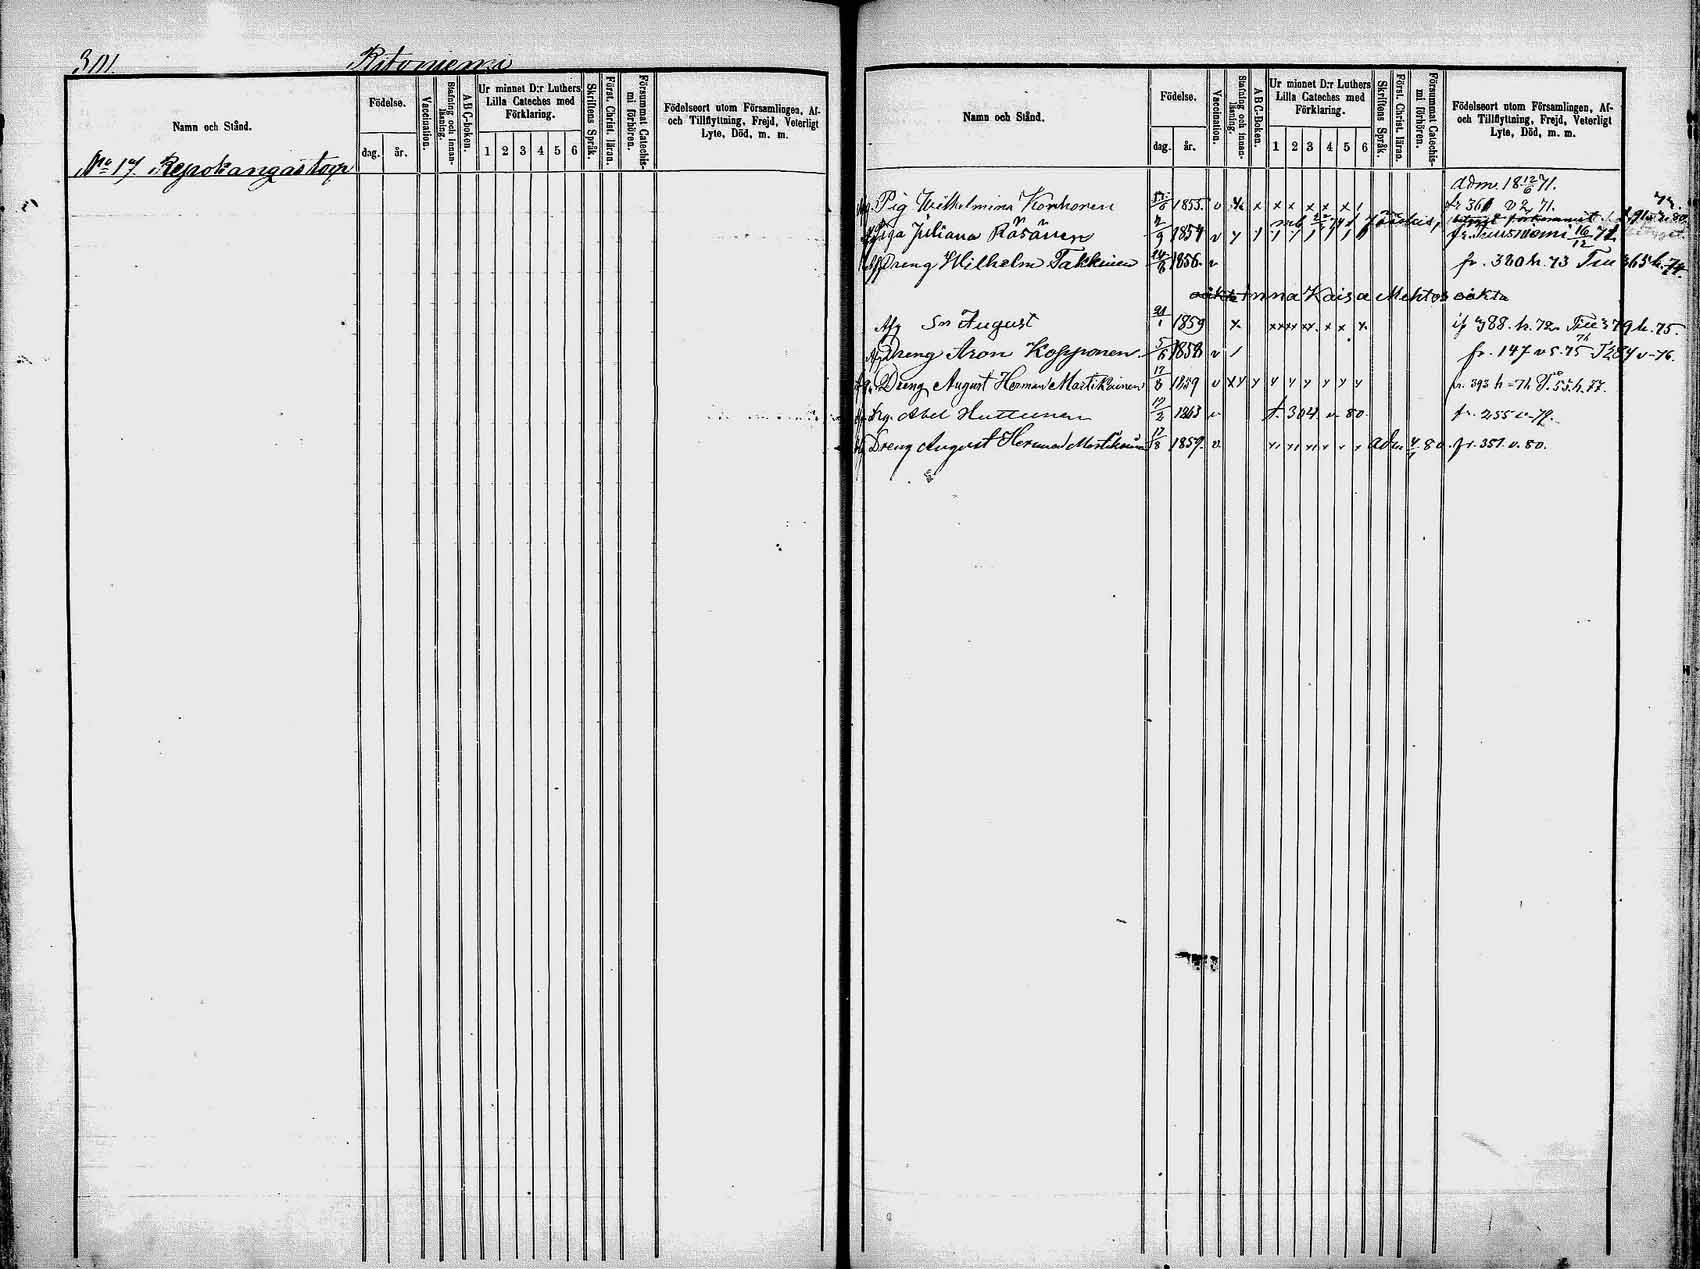 301. Ritoniemi
Namn och Stånd.
Födelse.
dag. år.
Vaccination.
Stafning och innan-läsning.
A B C-boken.
Ur minnet D:r Luthers Lilla Cateches med Förklaring.
1 2 3 4 5 6
Skriftens Språk.
Först. Christ. läran.
Försummat Catechis-mi förhören.
Födelseort utom Församlingen, Af- och Tillflyttning, Frejd, Veterligt Lyte, Död, m. m.
No 17. Repokangas torp
Namn och Stånd.
Födelse.
dag. år.
Vaccination.
Stafning och innan-läsning.
A B C-Boken.
Ur minnet D:r Luthers Lilla Cateches med Förklaring.
1 2 3 4 5 6
Skriftens Språk.
Först. Christ. läran.
Försummat Catechis-mi förhören.
Födelseort utom Församlingen, Af- och Tillflyttning, Frejd, Veterligt Lyte, Död, m. m.
adm. 18 12/6 71.
Pig Wilhelmina Korhonen 1855. v x x x x x x fr 361 v 71.
Piga Juliana Räsänen 2/9 1854 v fr. Tuusniemi 16/12 71
Dreng Wilhelm Takkinen 24/8 1856. v fr. 380 h. 73 Till 365 h. 74.
Anna Kaisa Mehtos oäkta
Afg Sn August 21/1 1859 x. x x x x x x x. if 388. h. 72. Till 379 h. 75
Afg Dreng Aron Kopponen 5/8 1858 v 1 fr. 147 v 5. 75 T 284 v-76.
Afg. Dreng August Herman Martikainen 17/8 1859 v fr. 393 h-76 T. 55. h. 77.
Afg Drg. Abel Huttunen 17/2 1863 v. t. 304 v 80. fr. 255 v-79.
Afg Dreng August Herman Martikainen 17/8 1859. v. adm 4/1 80. fr. 351. v. 80.